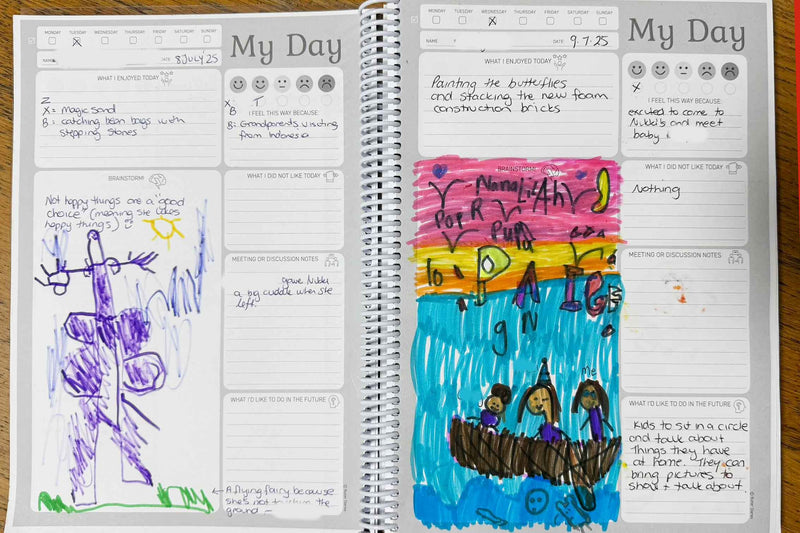 MONDAY TUESDAY WEDNESDAY THURSDAY FRIDAY SATURDAY SUNDAY
My Day
NAME DATE 8 JULY '25
WHAT I ENJOYED TODAY
X = Magic Sand
B: catching bean bags with
stepping stones
X B T
I FEEL THIS WAY BECAUSE:
B: Grandparents visiting
from Indonesia
BRAINSTORM!
Not happy things are a "good
choice" (meaning she likes
happy things)
WHAT I DID NOT LIKE TODAY
MEETING OR DISCUSSION NOTES
gave Nikki
a big cuddle when she
left.
WHAT I'D LIKE TO DO IN THE FUTURE
A flying fairy because
she's not touching the
ground
MONDAY TUESDAY WEDNESDAY THURSDAY FRIDAY SATURDAY SUNDAY
My Day
NAME DATE 9.7.25
WHAT I ENJOYED TODAY
Painting the butterflies
and stacking the new foam
construction bricks
X
I FEEL THIS WAY BECAUSE:
excited to come to
Nikki's and meet
baby
BRAINSTORM!
Me
WHAT I DID NOT LIKE TODAY
Nothing
MEETING OR DISCUSSION NOTES
WHAT I'D LIKE TO DO IN THE FUTURE
Kids to sit in a circle
and talk about
Things they have
at home. They can
bring pictures to
show + talk about